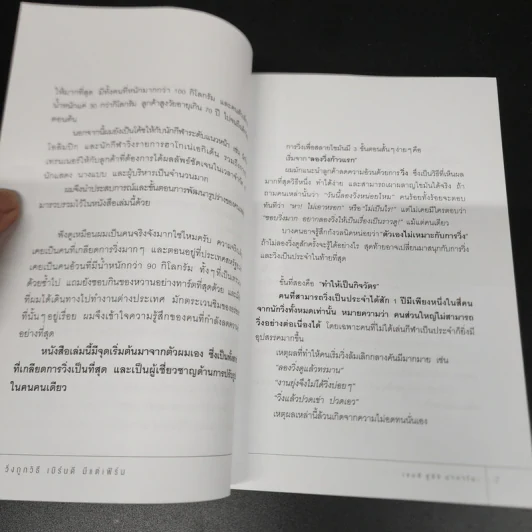 ให้มากที่สุด มีทั้งคนที่หนักมากกว่า 100 กิโลกรัม
น้ำหนักแค่ 30 กว่ากิโลกรัม ลูกค้าสูงวัยอายุเกิน 70 ปี
ตอนต้น
นอกจากนี้ผมยังเป็นโค้ชให้กับนักกีฬาระดับแนวหน้า เช่น
โอลิมปิก และนักกีฬาวิ่งรายการฮาโกเน่เอกิเด็น รวมถึง
เทรนเนอร์ให้กับลูกค้าที่ต้องการได้ผลลัพธ์ชัดเจนในเวลาจำกัด
นักแสดง นางแบบ และผู้บริหารเป็นจำนวนมาก
ผมจึงนำประสบการณ์และขั้นตอนการพัฒนารูปร่างของคน
มารวบรวมไว้ในหนังสือเล่มนี้ด้วย
ฟังดูเหมือนผมเป็นคนจริงจังมากใช่ไหมครับ ความจริง
เคยเป็นคนที่เกลียดการวิ่งมากๆ และตอนอยู่ที่ประเทศสหรัฐ
เคยเป็นคนอ้วนที่มีน้ำหนักกว่า 90 กิโลกรัม ทั้งๆ ที่เป็น
ด้วยซ้ำไป แถมยังชอบกินของหวานอย่างทาร์ตที่สุดด้วย และ
ที่ผมได้เดินทางไปทำงานต่างประเทศ มักตระเวนชิมของ
ที่นั้นๆ อยู่เรื่อย ผมจึงเข้าใจความรู้สึกของคนที่กำลังลด
อย่างที่สุด
หนังสือเล่มนี้มีจุดเริ่มต้นมาจากตัวผมเอง ซึ่งเป็น
ที่เกลียดการวิ่งเป็นที่สุด และเป็นผู้เชี่ยวชาญด้านการ
ในคนคนเดียว
วิ่งถูกวิธี เบิร์นดี มีแต่เฟิร์ม
การวิ่งเพื่อสลายไขมันมี 3 ขั้นตอนสั้นๆ ง่ายๆ คือ
เริ่มจาก "ลองวิ่งก้าวแรก"
ผมมักแนะนำลูกค้าลดความอ้วนด้วยการวิ่ง ซึ่งเป็นวิธีที่เห็นผล
มากที่สุดวิธีหนึ่ง ทำได้ง่าย และสามารถเผาผลาญไขมันได้จริง ถ้า
ถามคนเหล่านั้นว่า "วันนี้ลองวิ่งหน่อยไหม" คนร้อยทั้งร้อยจะตอบ
ทันทีว่า "หา! ไม่เอาหรอก" หรือ "ไม่เป็นไร!" แต่ไม่เคยมีใครตอบว่า
"ชอบวิ่งมาก อยากลองวิ่งให้เป็นเรื่องเป็นราวดู" แม้แต่คนเดียว
บางคนอาจรู้สึกกังวลนิดหน่อยว่า "ตัวเองไม่เหมาะกับการวิ่ง"
ถ้าไม่ลองวิ่งดูสักครั้งจะรู้ได้อย่างไร สุดท้ายอาจเปลี่ยนมาสนุกกับการวิ่ง
และวิ่งเป็นประจำในท้ายที่สุด
ขั้นที่สองคือ "ทำให้เป็นกิจวัตร"
คนที่สามารถวิ่งเป็นประจำได้สัก 1 ปีมีเพียงหนึ่งในสี่คน
จากนักวิ่งทั้งหมดเท่านั้น หมายความว่า คนส่วนใหญ่ไม่สามารถ
วิ่งอย่างต่อเนื่องได้ โดยเฉพาะคนที่ไม่ได้เล่นกีฬาเป็นประจำก็ยิ่งมี
อุปสรรคมากขึ้น
เหตุผลที่ทำให้คนเริ่มวิ่งล้มเลิกกลางคันมีมากมาย เช่น
"ลองวิ่งดูแล้วทรมาน"
"งานยุ่งจึงไม่ได้วิ่งบ่อยๆ"
"วิ่งแล้วปวดเข่า ปวดเอว"
เหตุผลเหล่านี้ล้วนเกิดจากความไม่อดทนนั่นเอง